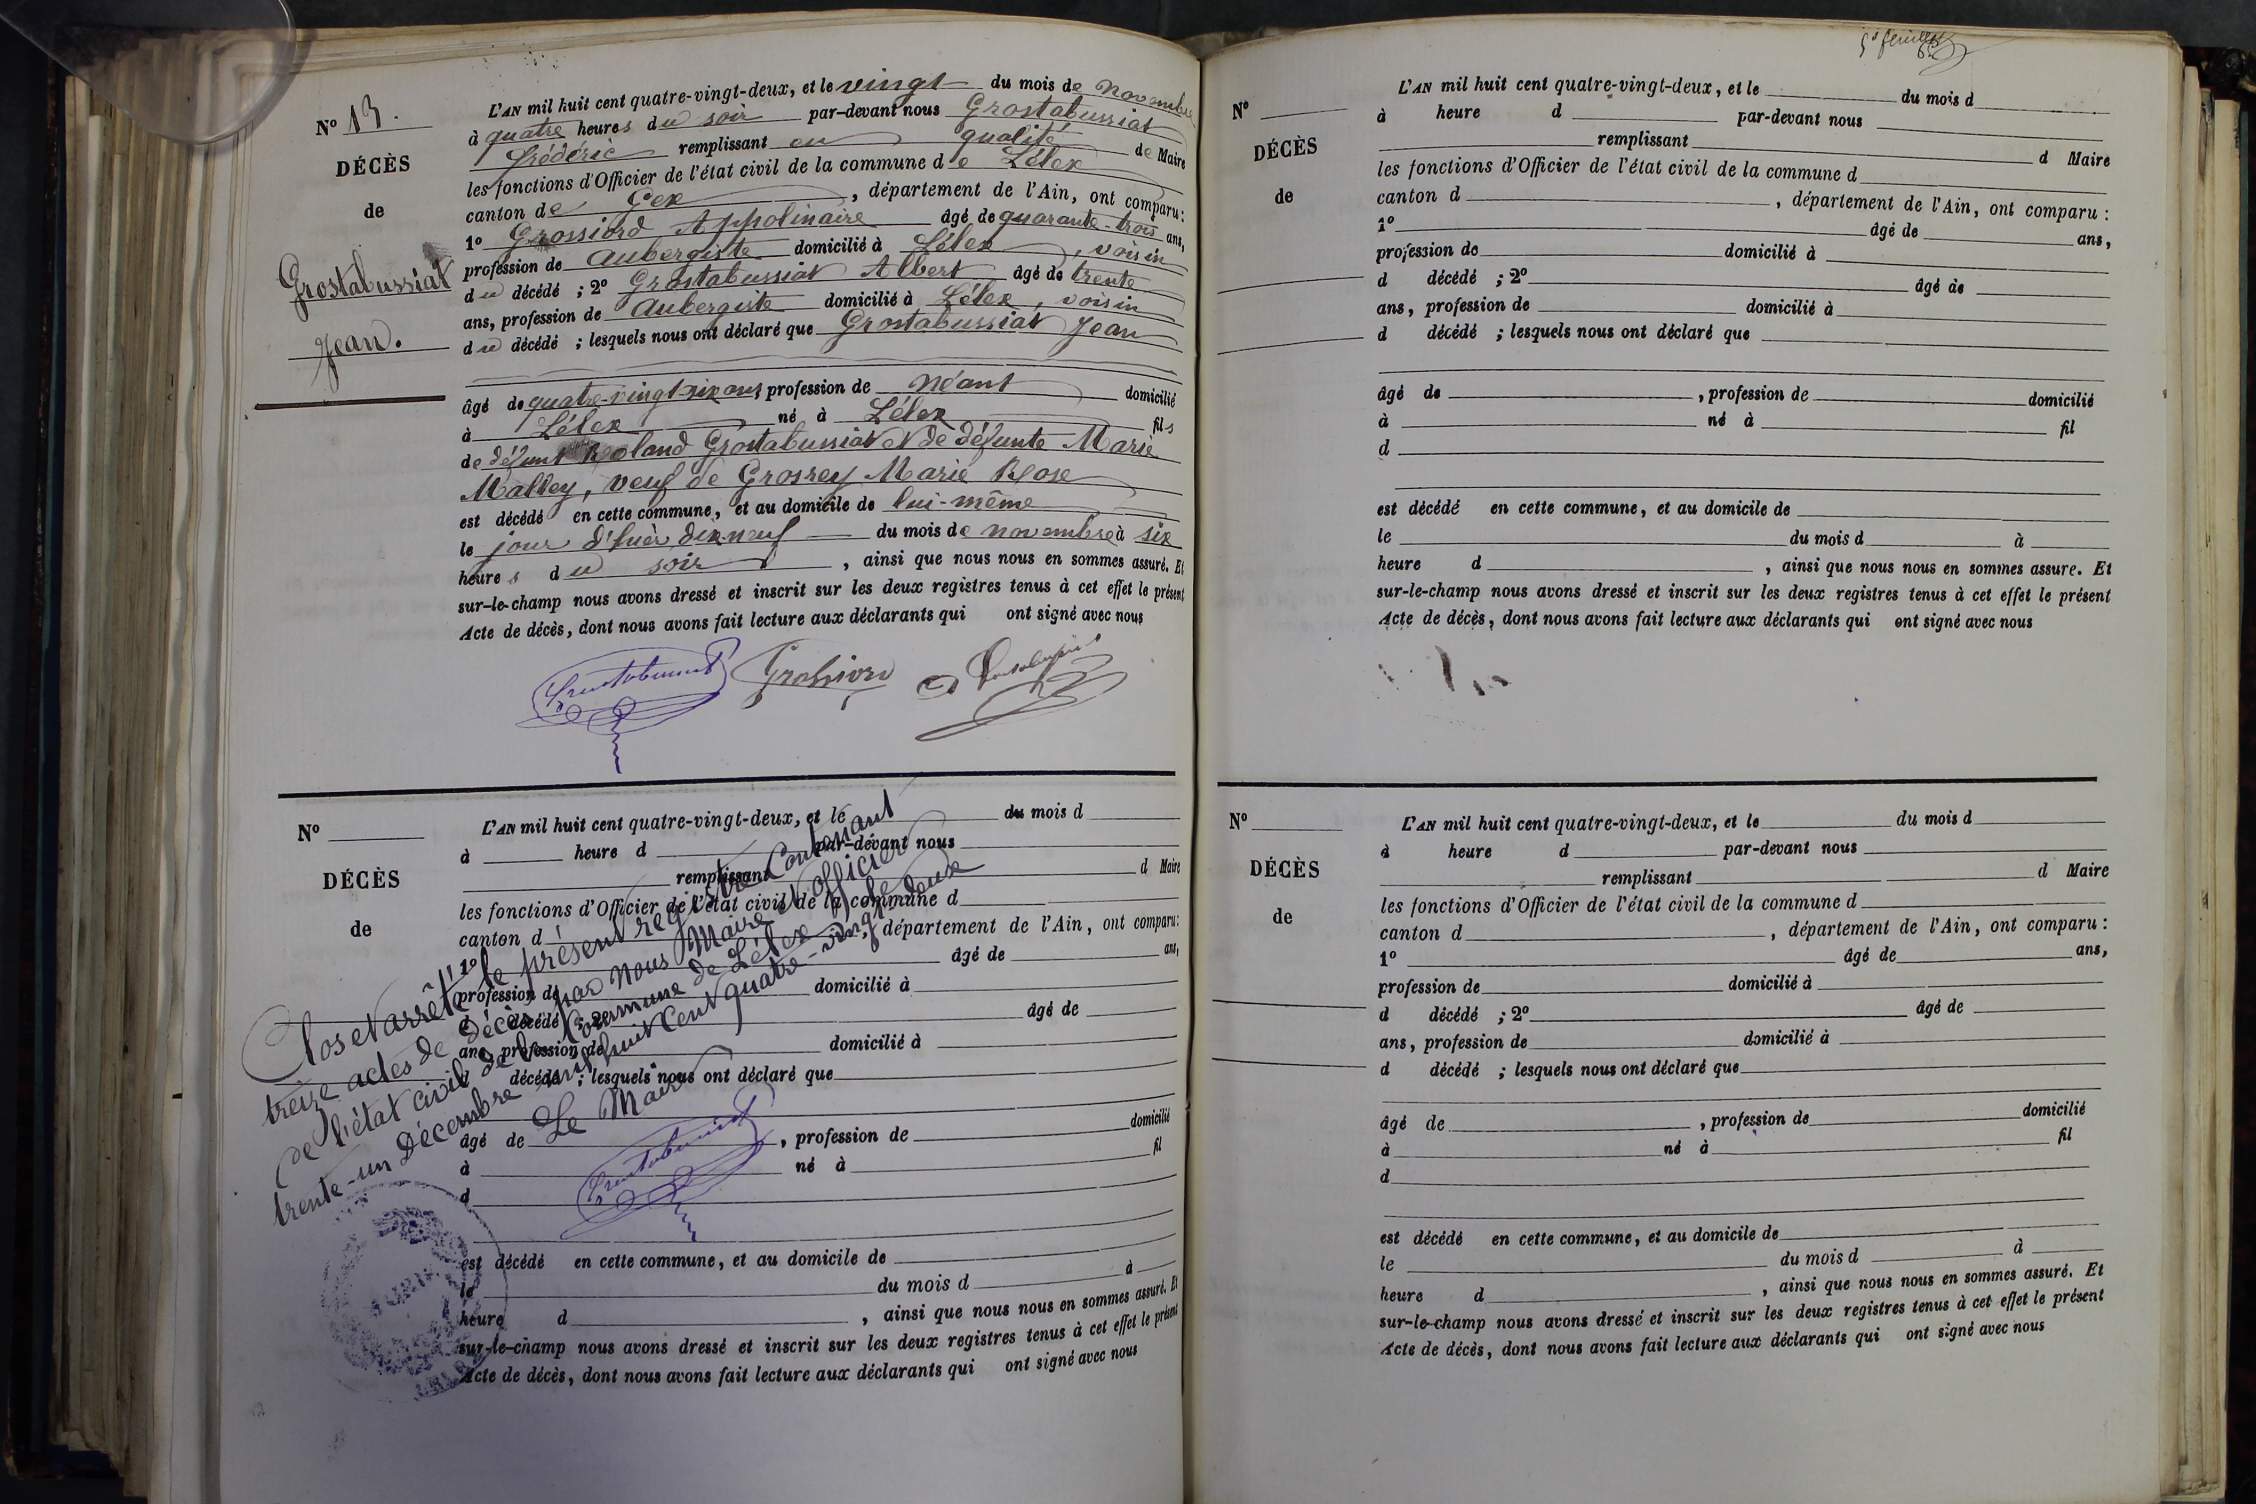 N° 13.
DÉCÈS
de
Grostabussiat
Jean.
L'AN mil huit cent quatre-vingt-deux, et le vingt du mois de novembre
à quatre heures du soir par-devant nous Grostabussiat
Frédéric remplissant en qualité de Maire
les fonctions d'Officier de l'état civil de la commune de Lélex
canton de Gex, département de l'Ain, ont comparu :
1° Grossiord Appolinaire âgé de quarante-trois ans,
profession de Aubergiste domicilié à Lélex, voisin
du décédé ; 2° Grostabussiat Albert âgé de trente
ans, profession de Aubergiste domicilié à Lélex, voisin
du décédé ; lesquels nous ont déclaré que Grostabussiat Jean
âgé de quatre-vingt-six ans, profession de Néant domicilié
à Lélex né à Lélex fils
de défunt Roland Grostabussiat et de défunte Marie
Malley, veuf de Grosrey Marie Rose
est décédé en cette commune, et au domicile de lui-même
le jour d'hièr dix-neuf du mois de novembre à six
heures du soir, ainsi que nous nous en sommes assuré. Et
sur-le-champ nous avons dressé et inscrit sur les deux registres tenus à cet effet le présent
Acte de décès, dont nous avons fait lecture aux déclarants qui ont signé avec nous
Grostabussiat Grossiord
N°
DÉCÈS
de
L'AN mil huit cent quatre-vingt-deux, et le du mois d
à heure d par-devant nous
remplissant d Maire
les fonctions d'Officier de l'état civil de la commune d
canton d , département de l'Ain, ont comparu :
1° âgé de ans,
profession de domicilié à
d décédé ; 2° âgé de
ans, profession de domicilié à
d décédé ; lesquels nous ont déclaré que
âgé de , profession de domicilié
à né à fil
d
est décédé en cette commune, et au domicile de
le du mois d à
heure d , ainsi que nous nous en sommes assuré. Et
sur-le-champ nous avons dressé et inscrit sur les deux registres tenus à cet effet le présent
Acte de décès, dont nous avons fait lecture aux déclarants qui ont signé avec nous
Clos et arrêté le présent registre Contenant
treize actes de Décès, par nous Maire et officier
de l'état civil de la Commune de Lélex le
trente-un Décembre mil huit cent quatre-vingt-deux
Le Maire
Grostabussiat
N°
DÉCÈS
de
L'AN mil huit cent quatre-vingt-deux, et le du mois d
à heure d par-devant nous
remplissant d Maire
les fonctions d'Officier de l'état civil de la commune d
canton d , département de l'Ain, ont comparu :
1° âgé de ans,
profession de domicilié à
d décédé ; 2° âgé de
ans, profession de domicilié à
d décédé ; lesquels nous ont déclaré que
âgé de , profession de domicilié
à né à fil
d
est décédé en cette commune, et au domicile de
le du mois d à
heure d , ainsi que nous nous en sommes assuré. Et
sur-le-champ nous avons dressé et inscrit sur les deux registres tenus à cet effet le présent
Acte de décès, dont nous avons fait lecture aux déclarants qui ont signé avec nous
N°
DÉCÈS
de
L'AN mil huit cent quatre-vingt-deux, et le du mois d
à heure d par-devant nous
remplissant d Maire
les fonctions d'Officier de l'état civil de la commune d
canton d , département de l'Ain, ont comparu :
1° âgé de ans,
profession de domicilié à
d décédé ; 2° âgé de
ans, profession de domicilié à
d décédé ; lesquels nous ont déclaré que
âgé de , profession de domicilié
à né à fil
d
est décédé en cette commune, et au domicile de
le du mois d à
heure d , ainsi que nous nous en sommes assuré. Et
sur-le-champ nous avons dressé et inscrit sur les deux registres tenus à cet effet le présent
Acte de décès, dont nous avons fait lecture aux déclarants qui ont signé avec nous